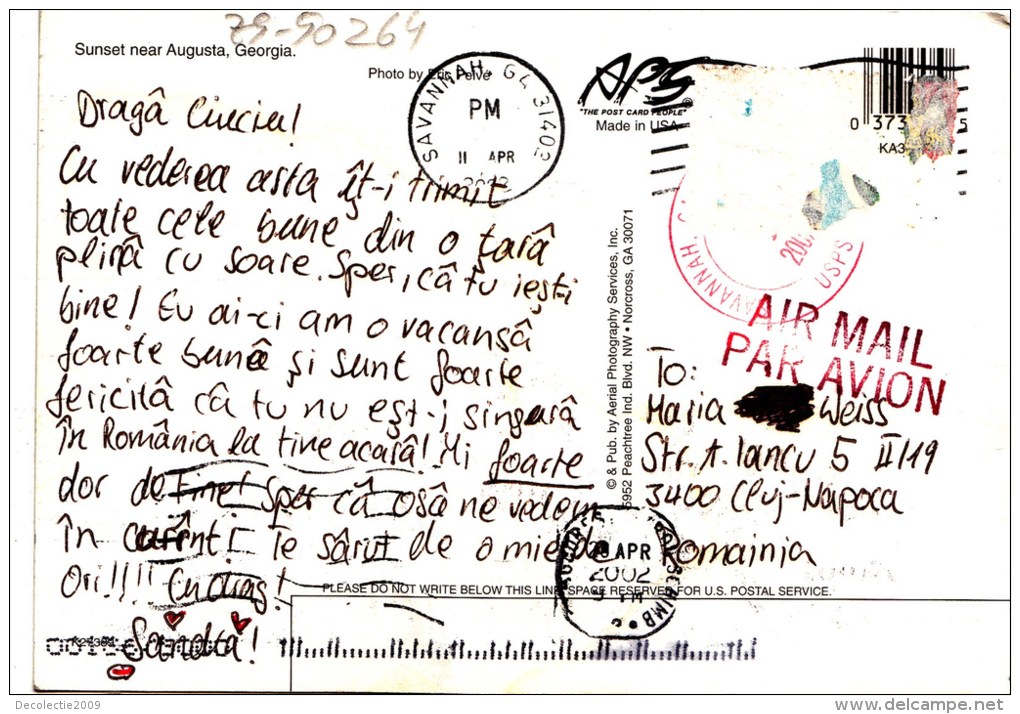 79-90264
Sunset near Augusta, Georgia.
Photo by Eric Pelvé
SAVANNAH, GA 31402
PM
11 APR
2002
APS
"THE POST CARD PEOPLE"®
Made in USA
0 373 5
KA3
Dragâ Cinciu!
Cu vederea asta îţ-i trimit
toate cele bune din o ţarâ
plinâ cu soare. Sper, câ tu ieşt-i
bine! Eu ai-ci am o vacansâ
foarte bunâ şi sunt foarte
fericitâ câ tu nu eşt-i singurâ
în România la tine acasâ! Mi foarte
dor de tine! Sper câ osâ ne vedem
în curînt! Te sârut de o mie de
Ori!!!! Cu drag!
Sandra!
© & Pub. by Aerial Photography Services, Inc.
6952 Peachtree Ind. Blvd. NW • Norcross, GA 30071
SAVANNAH,
USPS
AIR MAIL
PAR AVION
To:
Maria Weiss
Str. A. Iancu 5 II/19
3400 Cluj-Napoca
Romainia
APR
2002
PLEASE DO NOT WRITE BELOW THIS LINE. SPACE RESERVED FOR U.S. POSTAL SERVICE.
Decolectie2009
delcampe.net